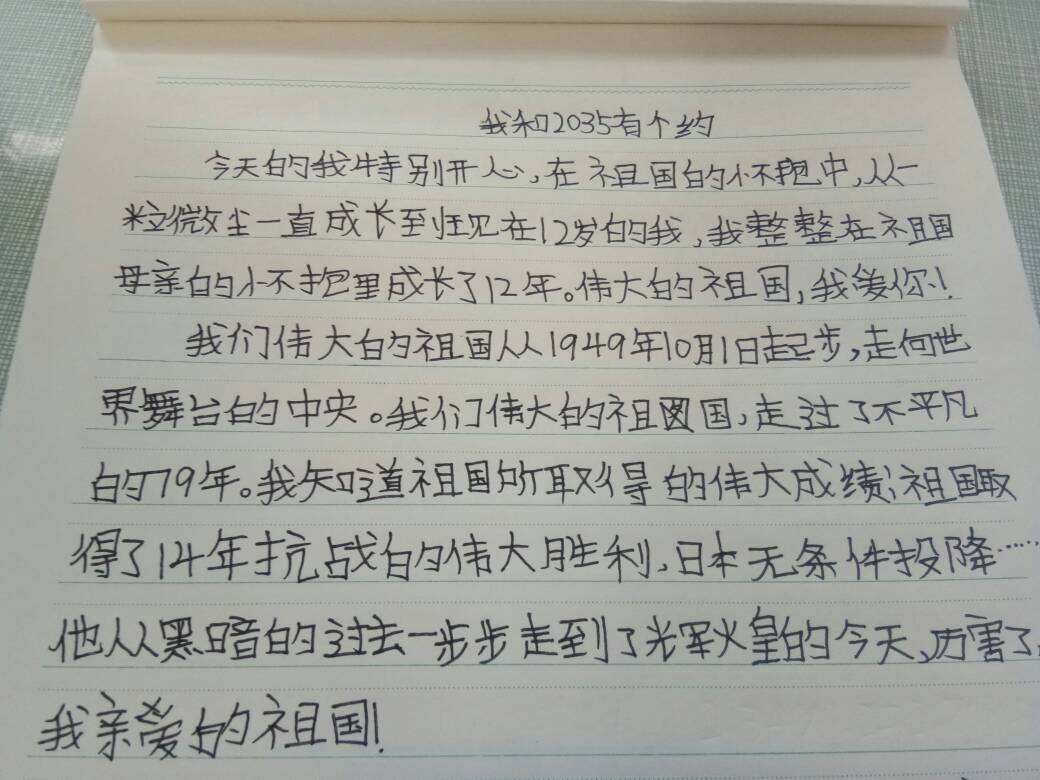 我和2035有个约
今天的我特别开心,在祖国的怀抱中,从一
粒微尘一直成长至现在12岁的我,我整整在祖国
母亲的怀抱里成长了12年。伟大的祖国,我爱你!
我们伟大的祖国从1949年10月1日起步,走向世
界舞台的中央。我们伟大的祖国,走过了不平凡
的79年。我知道祖国所取得的伟大成绩;祖国取
得了14年抗战的伟大胜利,日本无条件投降……
他从黑暗的过去一步步走到了光辉火皇的今天,厉害了,
我亲爱的祖国!